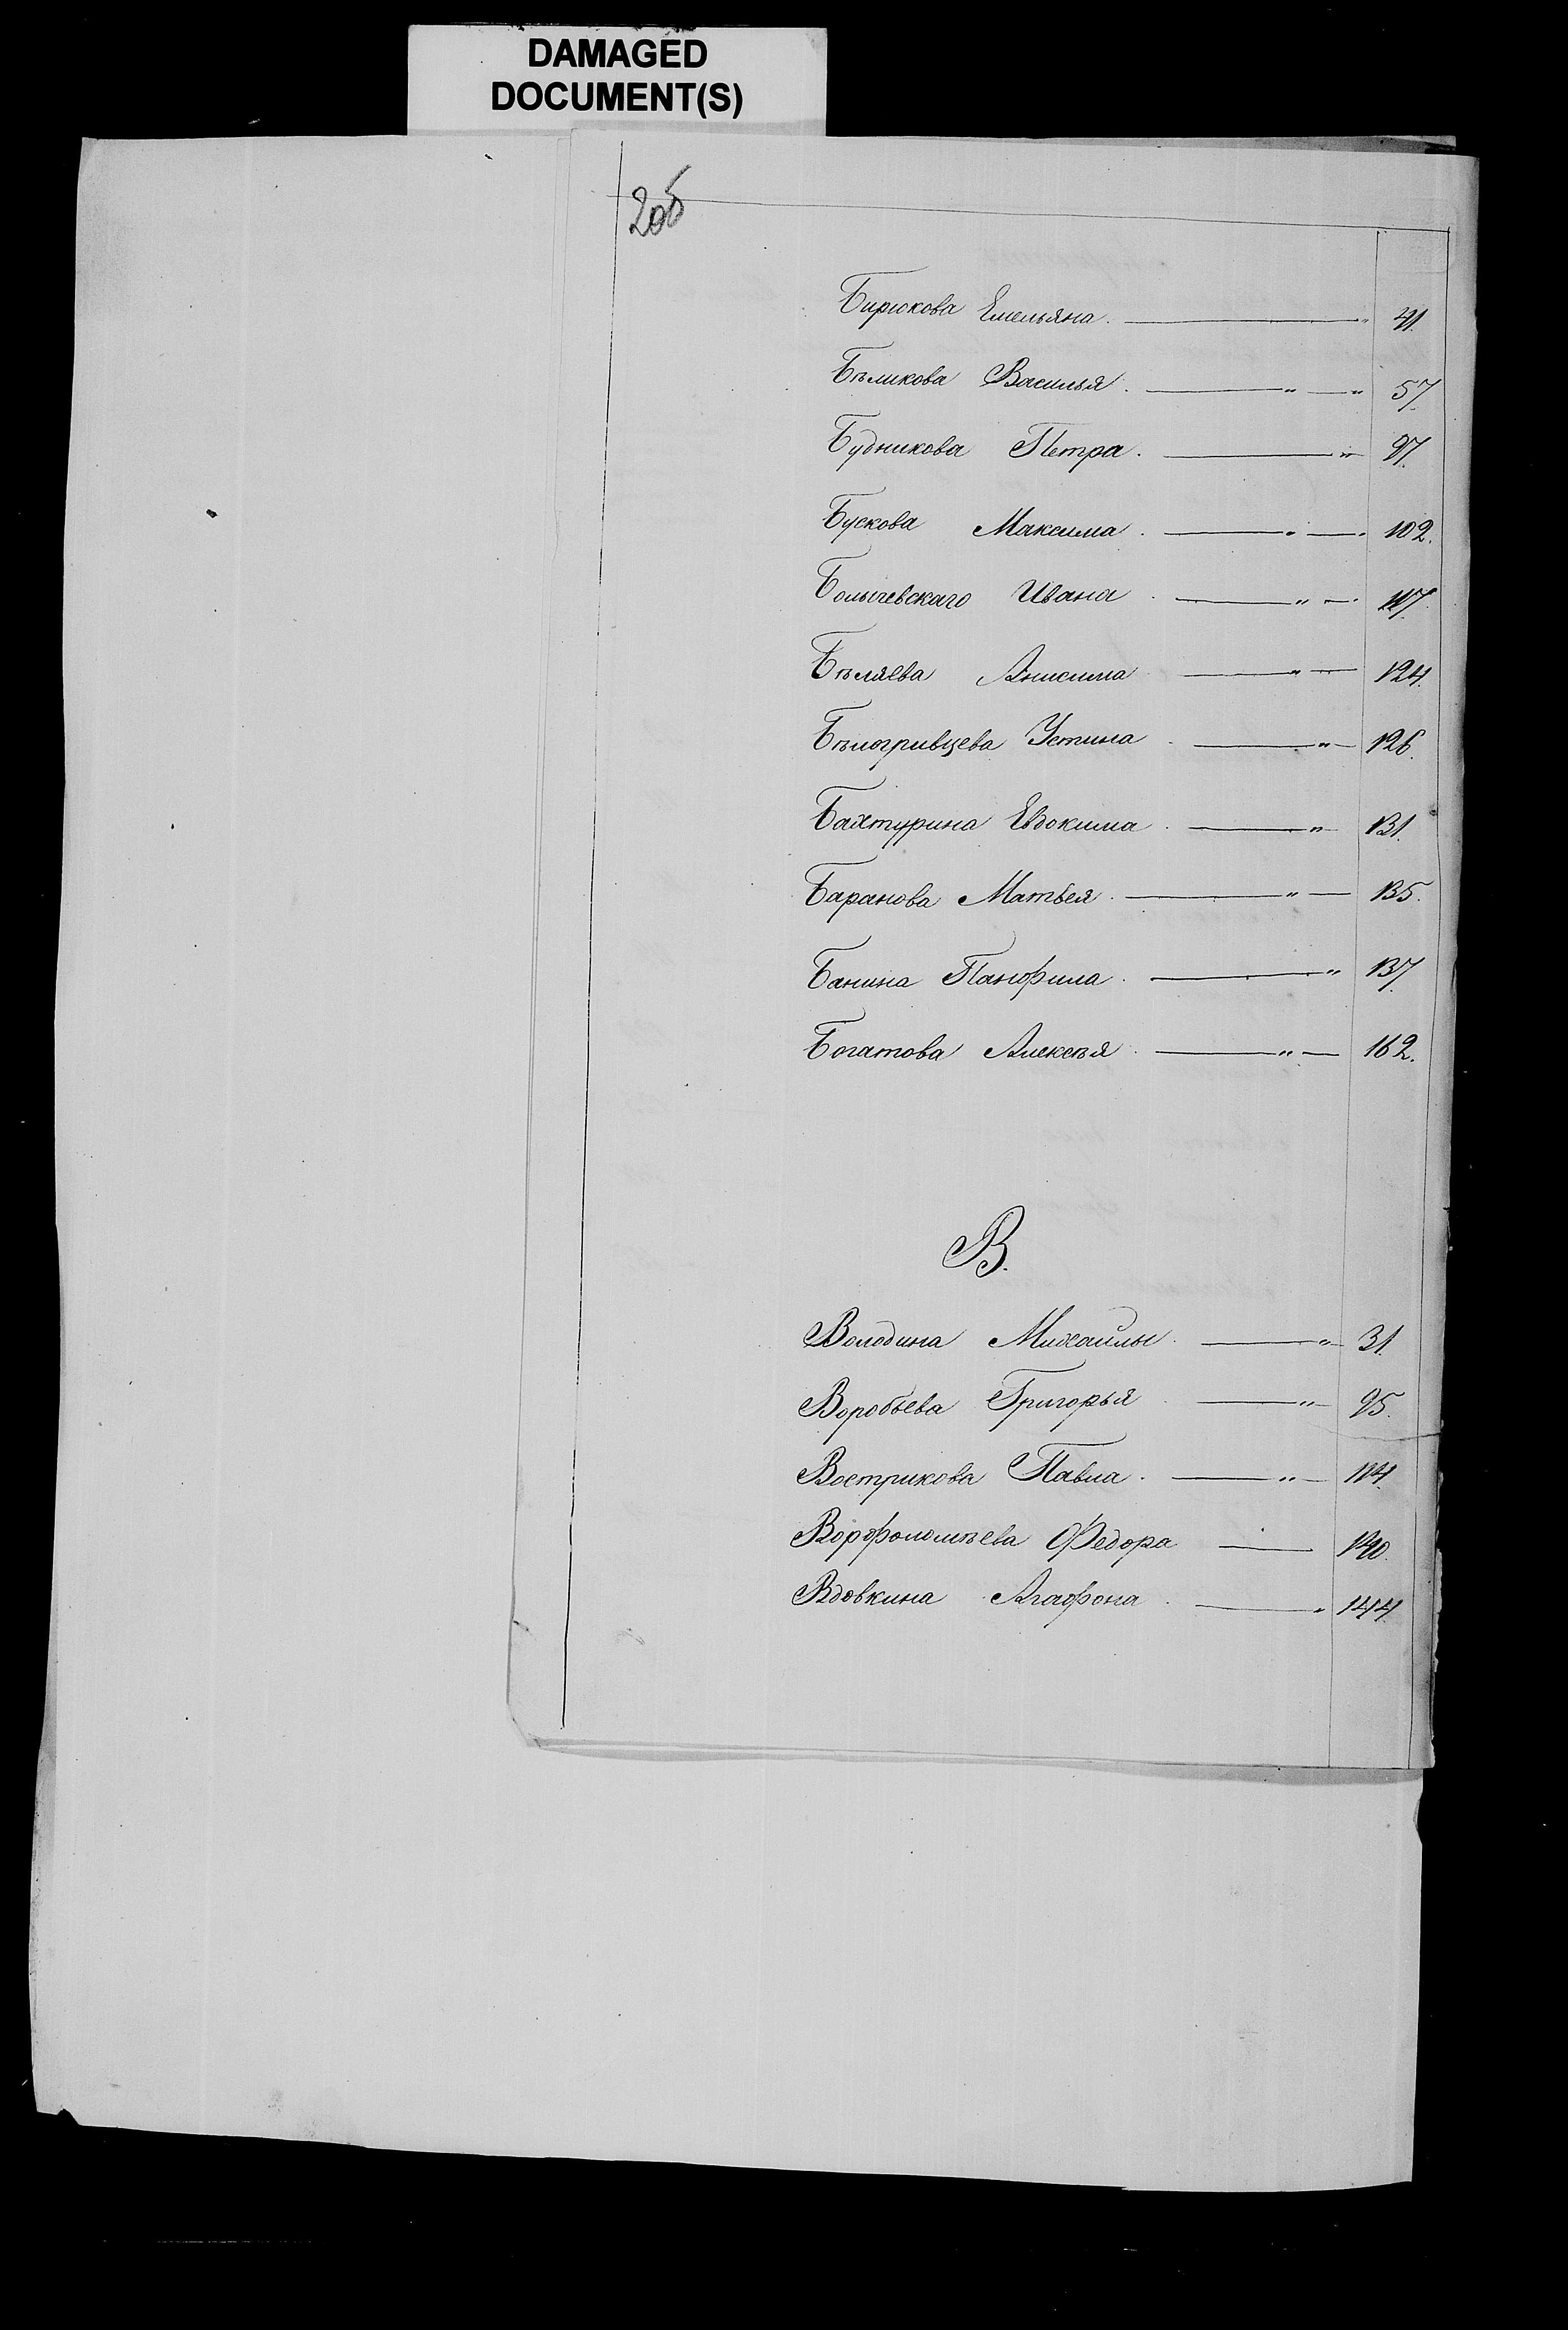 DAMAGED
DOCUMENT(S)
205
Бирюкова Емельяна. 41.
Бѣликова Василья. 57.
Будникова Петра. 97.
Бускова Максима. 102.
Болычевскаго Ивана. 117.
Бѣляева Анисима 124.
Бѣлогривцева Устина. 126.
Бахтурина Евдокима. 131.
Баранова Матвея. 135.
Банина Панфила. 137.
Богатова Алексѣя. 162.
В.
Володина Михайлы. 31.
Воробьева Григорья. 95.
Вострикова Павла. 114.
Ворфоломѣева Федора 140.
Вдовкина Агафона. 144.